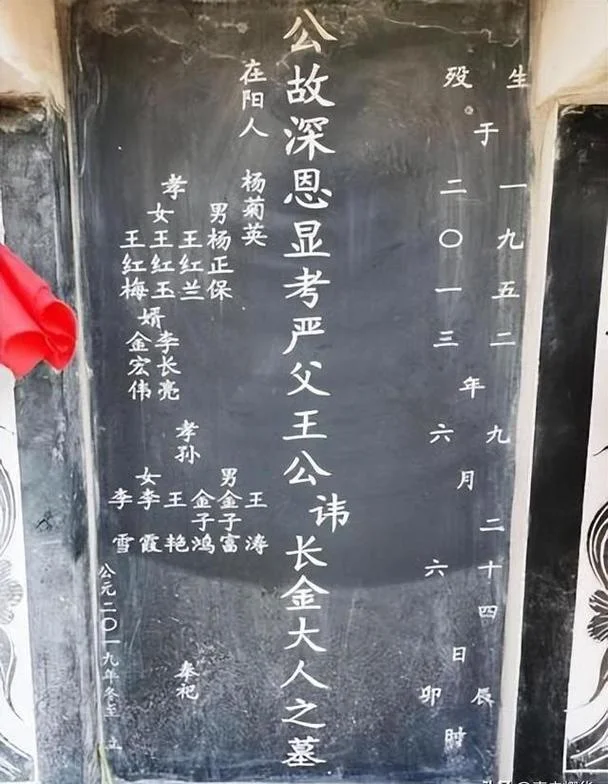 生一九五二九二十四辰
于年月日时
殁二〇一三六六卯
公故深恩显考严父王公讳长金大人之墓
在阳人 杨菊英
孝
男杨正保
女王红兰
王红玉
王红梅
婿李长亮
金宏伟
孝孙
男王涛
金子富
金子鸿
女王艳
李霞
李雪
奉祀
公元二〇一九年冬至 立